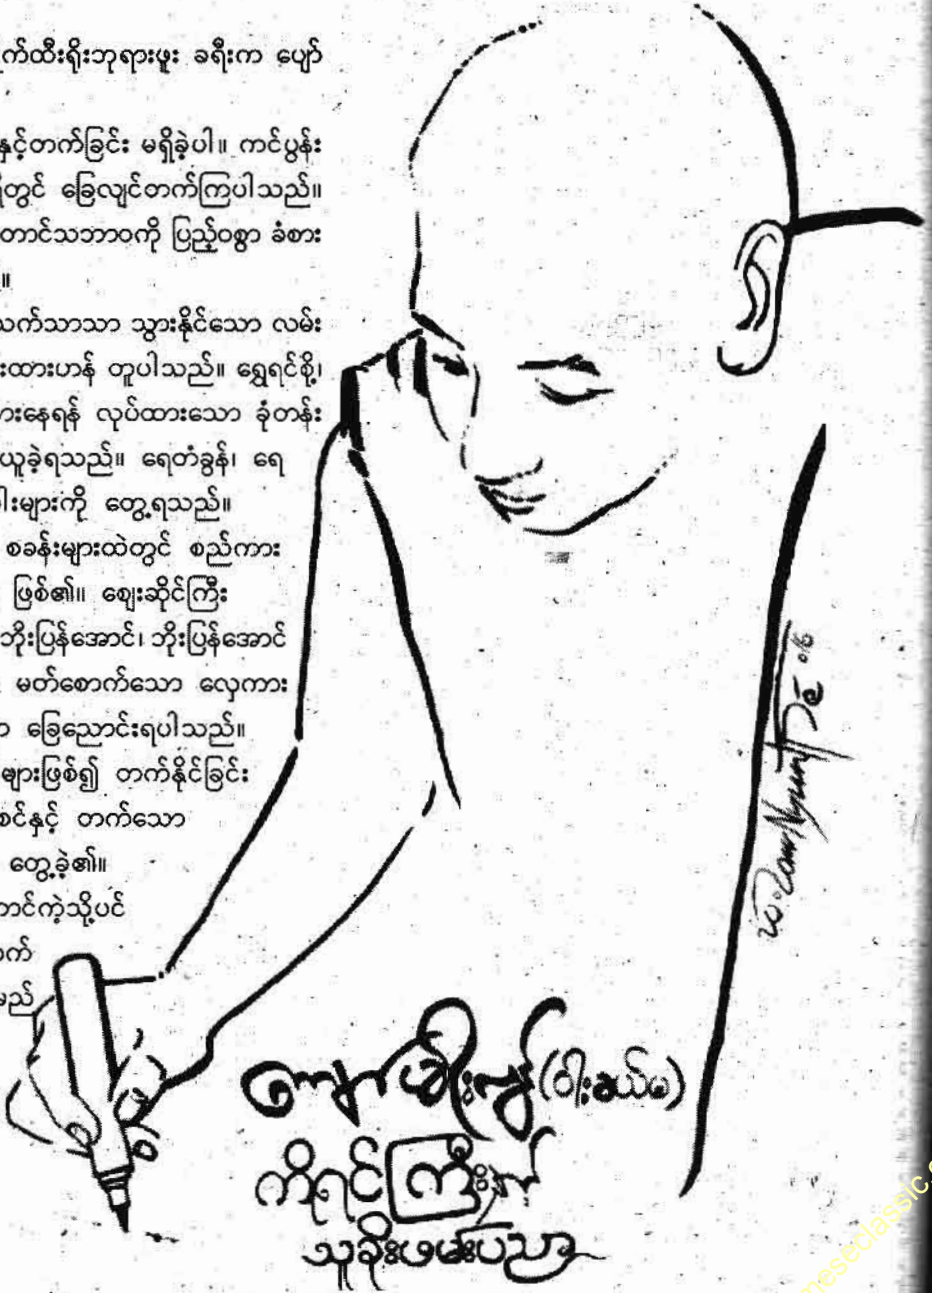 က်ထီးရိုးဘုရားဖူး ခရီးက ပျော်
နှင့်တက်ခြင်း မရှိခဲ့ပါ။ ကင်ပွန်း
တွင် ခြေလျင်တက်ကြပါသည်။
တောင်သဘာဝကို ပြည့်ဝစွာ ခံစား
။
သက်သာသာ သွားနိုင်သော လမ်း
းထားဟန် တူပါသည်။ ရွှေရင်စို့၊
ားနေရန် လုပ်ထားသော ခုံတန်း
ယူခဲ့ရသည်။ ရေတံခွန်၊ ရေ
ါးများကို တွေ့ရသည်။
စခန်းများထဲတွင် စည်ကား
ဖြစ်၏။ ဈေးဆိုင်ကြီး
ဘိုးပြန်အောင်၊ ဘိုးပြန်အောင်
မတ်စောက်သော လှေကား
ခြေညောင်းရပါသည်။
များဖြစ်၍ တက်နိုင်ခြင်း
စင်နှင့် တက်သော
တွေ့ခဲ့၏။
တင်ကဲ့သို့ပင်
က်
မည်
(ဝါးခယ်မ)
ကိုရင်ကြီးနှင့်
သူခိုးဖမ်းပညာ